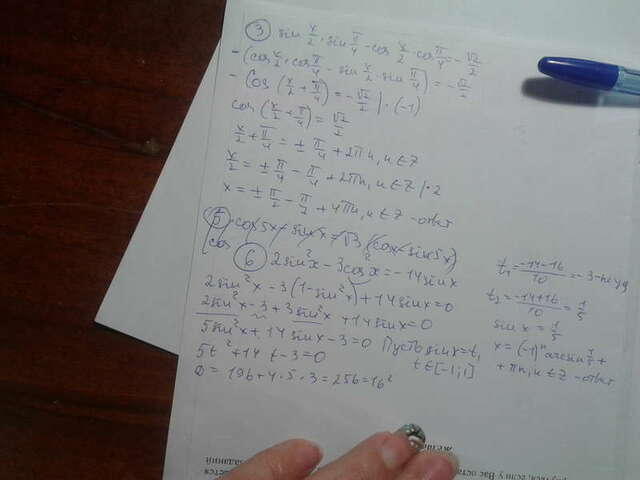 3 sin x/2 · sin π/4 - cos x/2 · cos π/4 = -√2/2
-(cos x/2 · cos π/4 - sin x/2 · sin π/4) = -√2/2
- cos (x/2 + π/4) = -√2/2 | · (-1)
cos (x/2 + π/4) = √2/2
x/2 + π/4 = ± π/4 + 2πn, n ∈ Z
x/2 = ± π/4 - π/4 + 2πn, n ∈ Z | · 2
x = ± π/2 - π/2 + 4πn, n ∈ Z - ответ
5
6 2sin²x - 3cos²x = -14sinx
2sin²x - 3(1-sin²x) + 14sinx = 0
2sin²x - 3 + 3sin²x + 14sinx = 0
5sin²x + 14sinx - 3 = 0 Пусть sinx = t,
5t² + 14t - 3 = 0 t ∈ [-1; 1]
D = 196 + 4 · 5 · 3 = 256 = 16²
t₁ = -14-16/10 = -3 - не уд
t₂ = -14+16/10 = 1/5
sin x = 1/5
x = (-1)ⁿ arcsin 1/5 +
+ πn, n ∈ Z - ответ